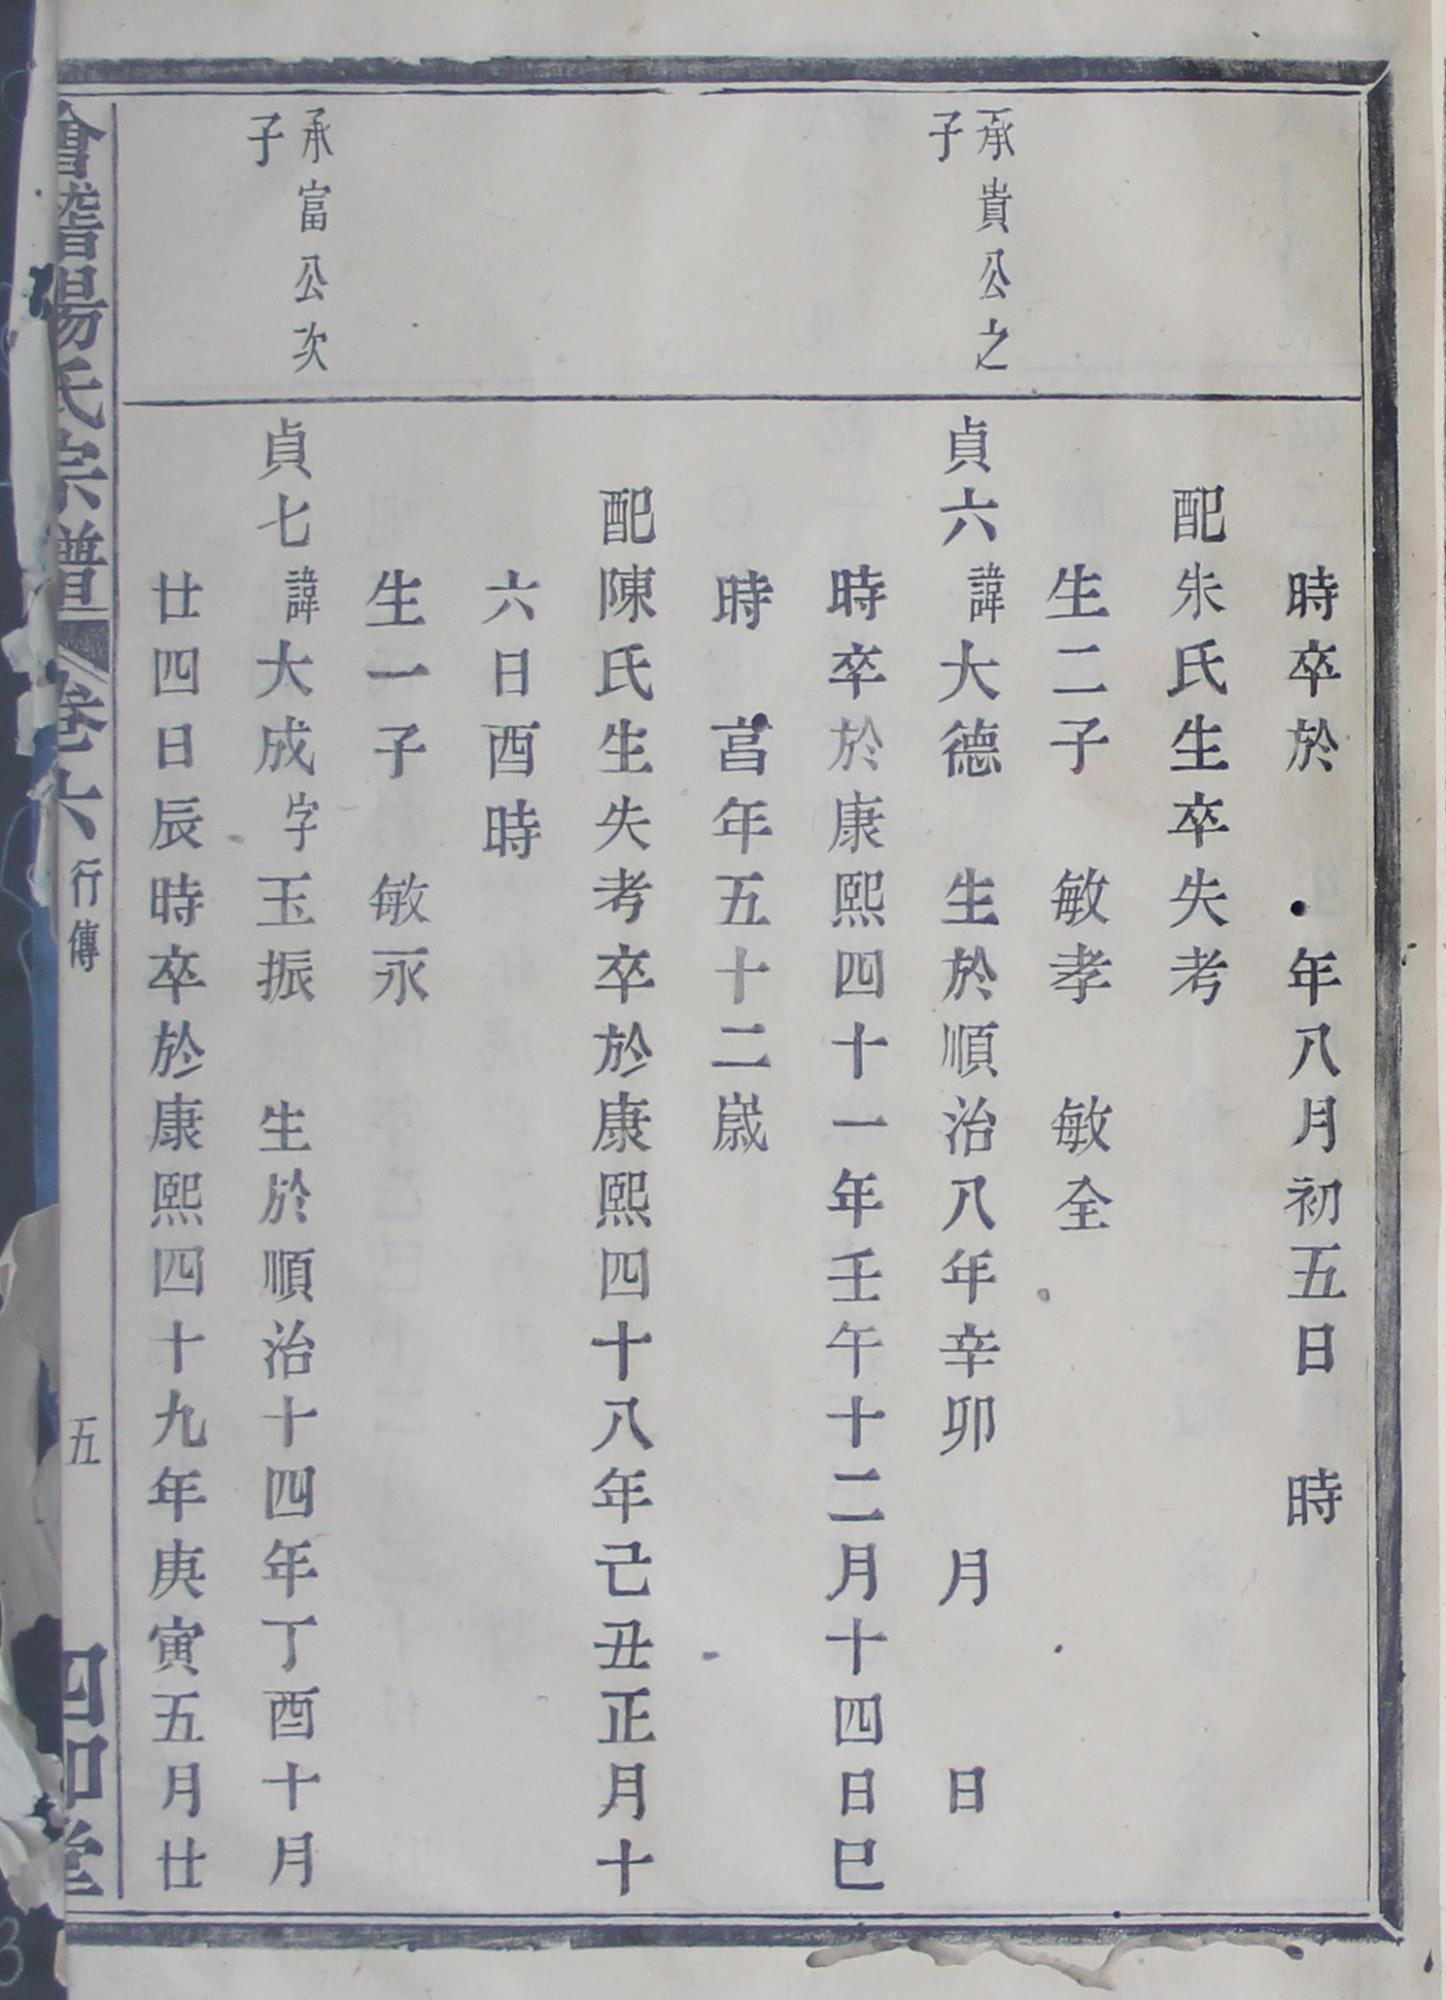 時卒於　年八月初五日　時
配朱氏生卒失考
生二子　敏孝　敏全
承貴公之
子
貞六諱大德　生於順治八年辛卯　月　日
時卒於康熙四十一年壬午十二月十四日巳
時　亯年五十二嵗
配陳氏生失考卒於康熙四十八年己丑正月十
六日酉時
生一子　敏永
承富公次
子
貞七諱大成字玉振　生於順治十四年丁酉十月
廿四日辰時卒於康熙四十九年庚寅五月廿
會稽楊氏宗譜　卷六　行傳　五　四知堂